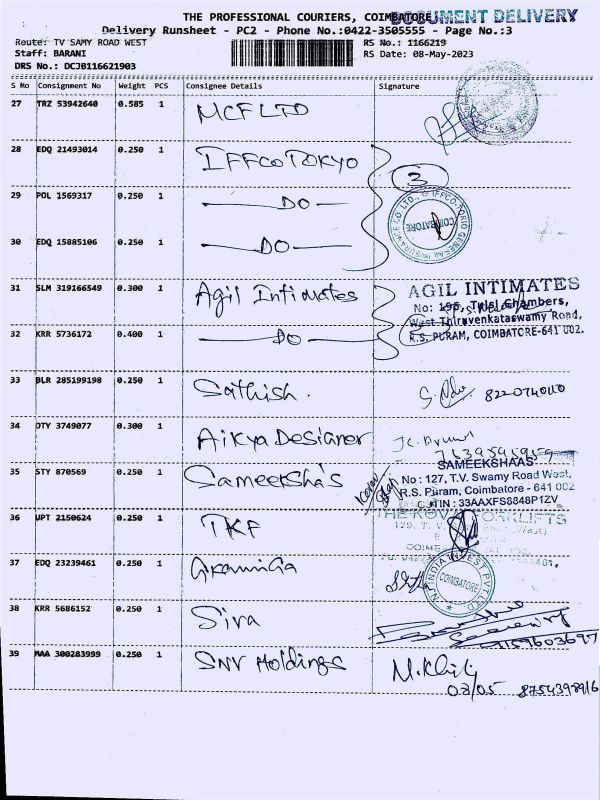 THE PROFESSIONAL COURIERS, COIMBATORE
DOCUMENT DELIVERY
Delivery Runsheet - PC2 - Phone No.:0422-3505555 - Page No.:3
Route: TV SAMY ROAD WEST
RS No.: 1166219
Staff: BARANI
RS Date: 08-May-2023
DRS No.: DCJB116621903
S No Consignment No Weight PCS Consignee Details Signature
27 TRZ 53942640 0.585 1 MCF LTD
28 EDQ 21493014 0.250 1 IFFCO TOKYO
3
29 POL 1569317 0.250 1 — DO —
30 EDQ 15885106 0.250 1 — DO —
COIMBATORE
31 SLM 319166549 0.300 1 Agil Intimates
AGIL INTIMATES
No: 195, Tulsi Chambers,
West Thiruvenkataswamy Road,
R.S. PURAM, COIMBATORE-641 002.
32 KRR 5736172 0.400 1 — DO —
33 BLR 285199198 0.250 1 Sathish.
34 OTY 3749077 0.300 1 Aikya Designer
35 STY 870569 0.250 1 Sameeksha's
SAMEEKSHAAS
No : 127, T.V. Swamy Road West,
R.S. Puram, Coimbatore - 641 002
GSTIN : 33AAXFS8848P1ZV
36 UPT 2150624 0.250 1 TKF
37 EDQ 23239461 0.250 1
COIMBATORE
38 KRR 5686152 0.250 1 Siva
39 MAA 300283999 0.250 1 SNV Holdings